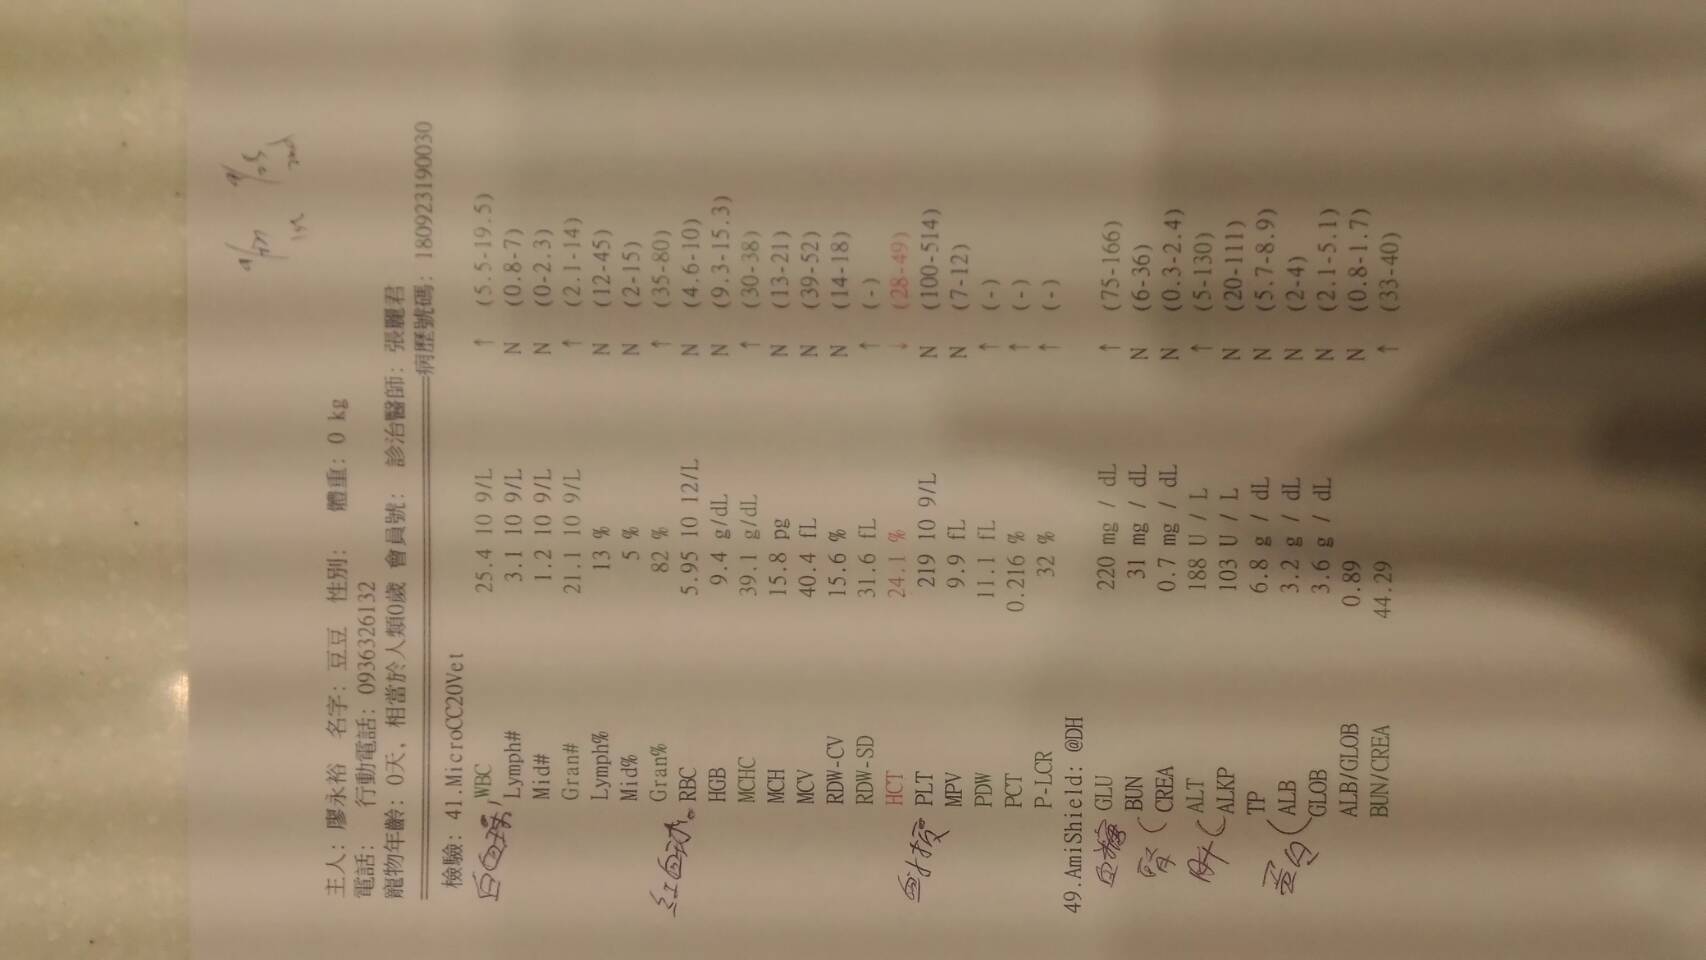 主人: 廖永裕 名字: 豆豆 性別: 體重: 0 kg
電話: 行動電話: 0936326132
寵物年齡: 0天, 相當於人類0歲 會員號: 診治醫師: 張麗君
病歷號碼: 180923190030
檢驗: 41.MicroCC20Vet
白血球, WBC 25.4 10 9/L ↑ (5.5-19.5)
Lymph# 3.1 10 9/L N (0.8-7)
Mid# 1.2 10 9/L N (0-2.3)
Gran# 21.1 10 9/L ↑ (2.1-14)
Lymph% 13 % N (12-45)
Mid% 5 % N (2-15)
Gran% 82 % ↑ (35-80)
紅血球. RBC 5.95 10 12/L N (4.6-10)
HGB 9.4 g/dL N (9.3-15.3)
MCHC 39.1 g/dL ↑ (30-38)
MCH 15.8 pg N (13-21)
MCV 40.4 fL N (39-52)
RDW-CV 15.6 % N (14-18)
RDW-SD 31.6 fL ↑ (-)
HCT 24.1 % ↓ (28-49)
PLT 219 10 9/L N (100-514)
MPV 9.9 fL N (7-12)
PDW 11.1 fL ↑ (-)
PCT 0.216 % ↑ (-)
P-LCR 32 % ↑ (-)
49.AmiShield: @DH
血糖 GLU 220 mg / dL ↑ (75-166)
BUN 31 mg / dL N (6-36)
腎 ( CREA 0.7 mg / dL N (0.3-2.4)
ALT 188 U / L ↑ (5-130)
肝 ( ALKP 103 U / L N (20-111)
TP 6.8 g / dL N (5.7-8.9)
蛋白 ( ALB 3.2 g / dL N (2-4)
GLOB 3.6 g / dL N (2.1-5.1)
ALB/GLOB 0.89 N (0.8-1.7)
BUN/CREA 44.29 ↑ (33-40)